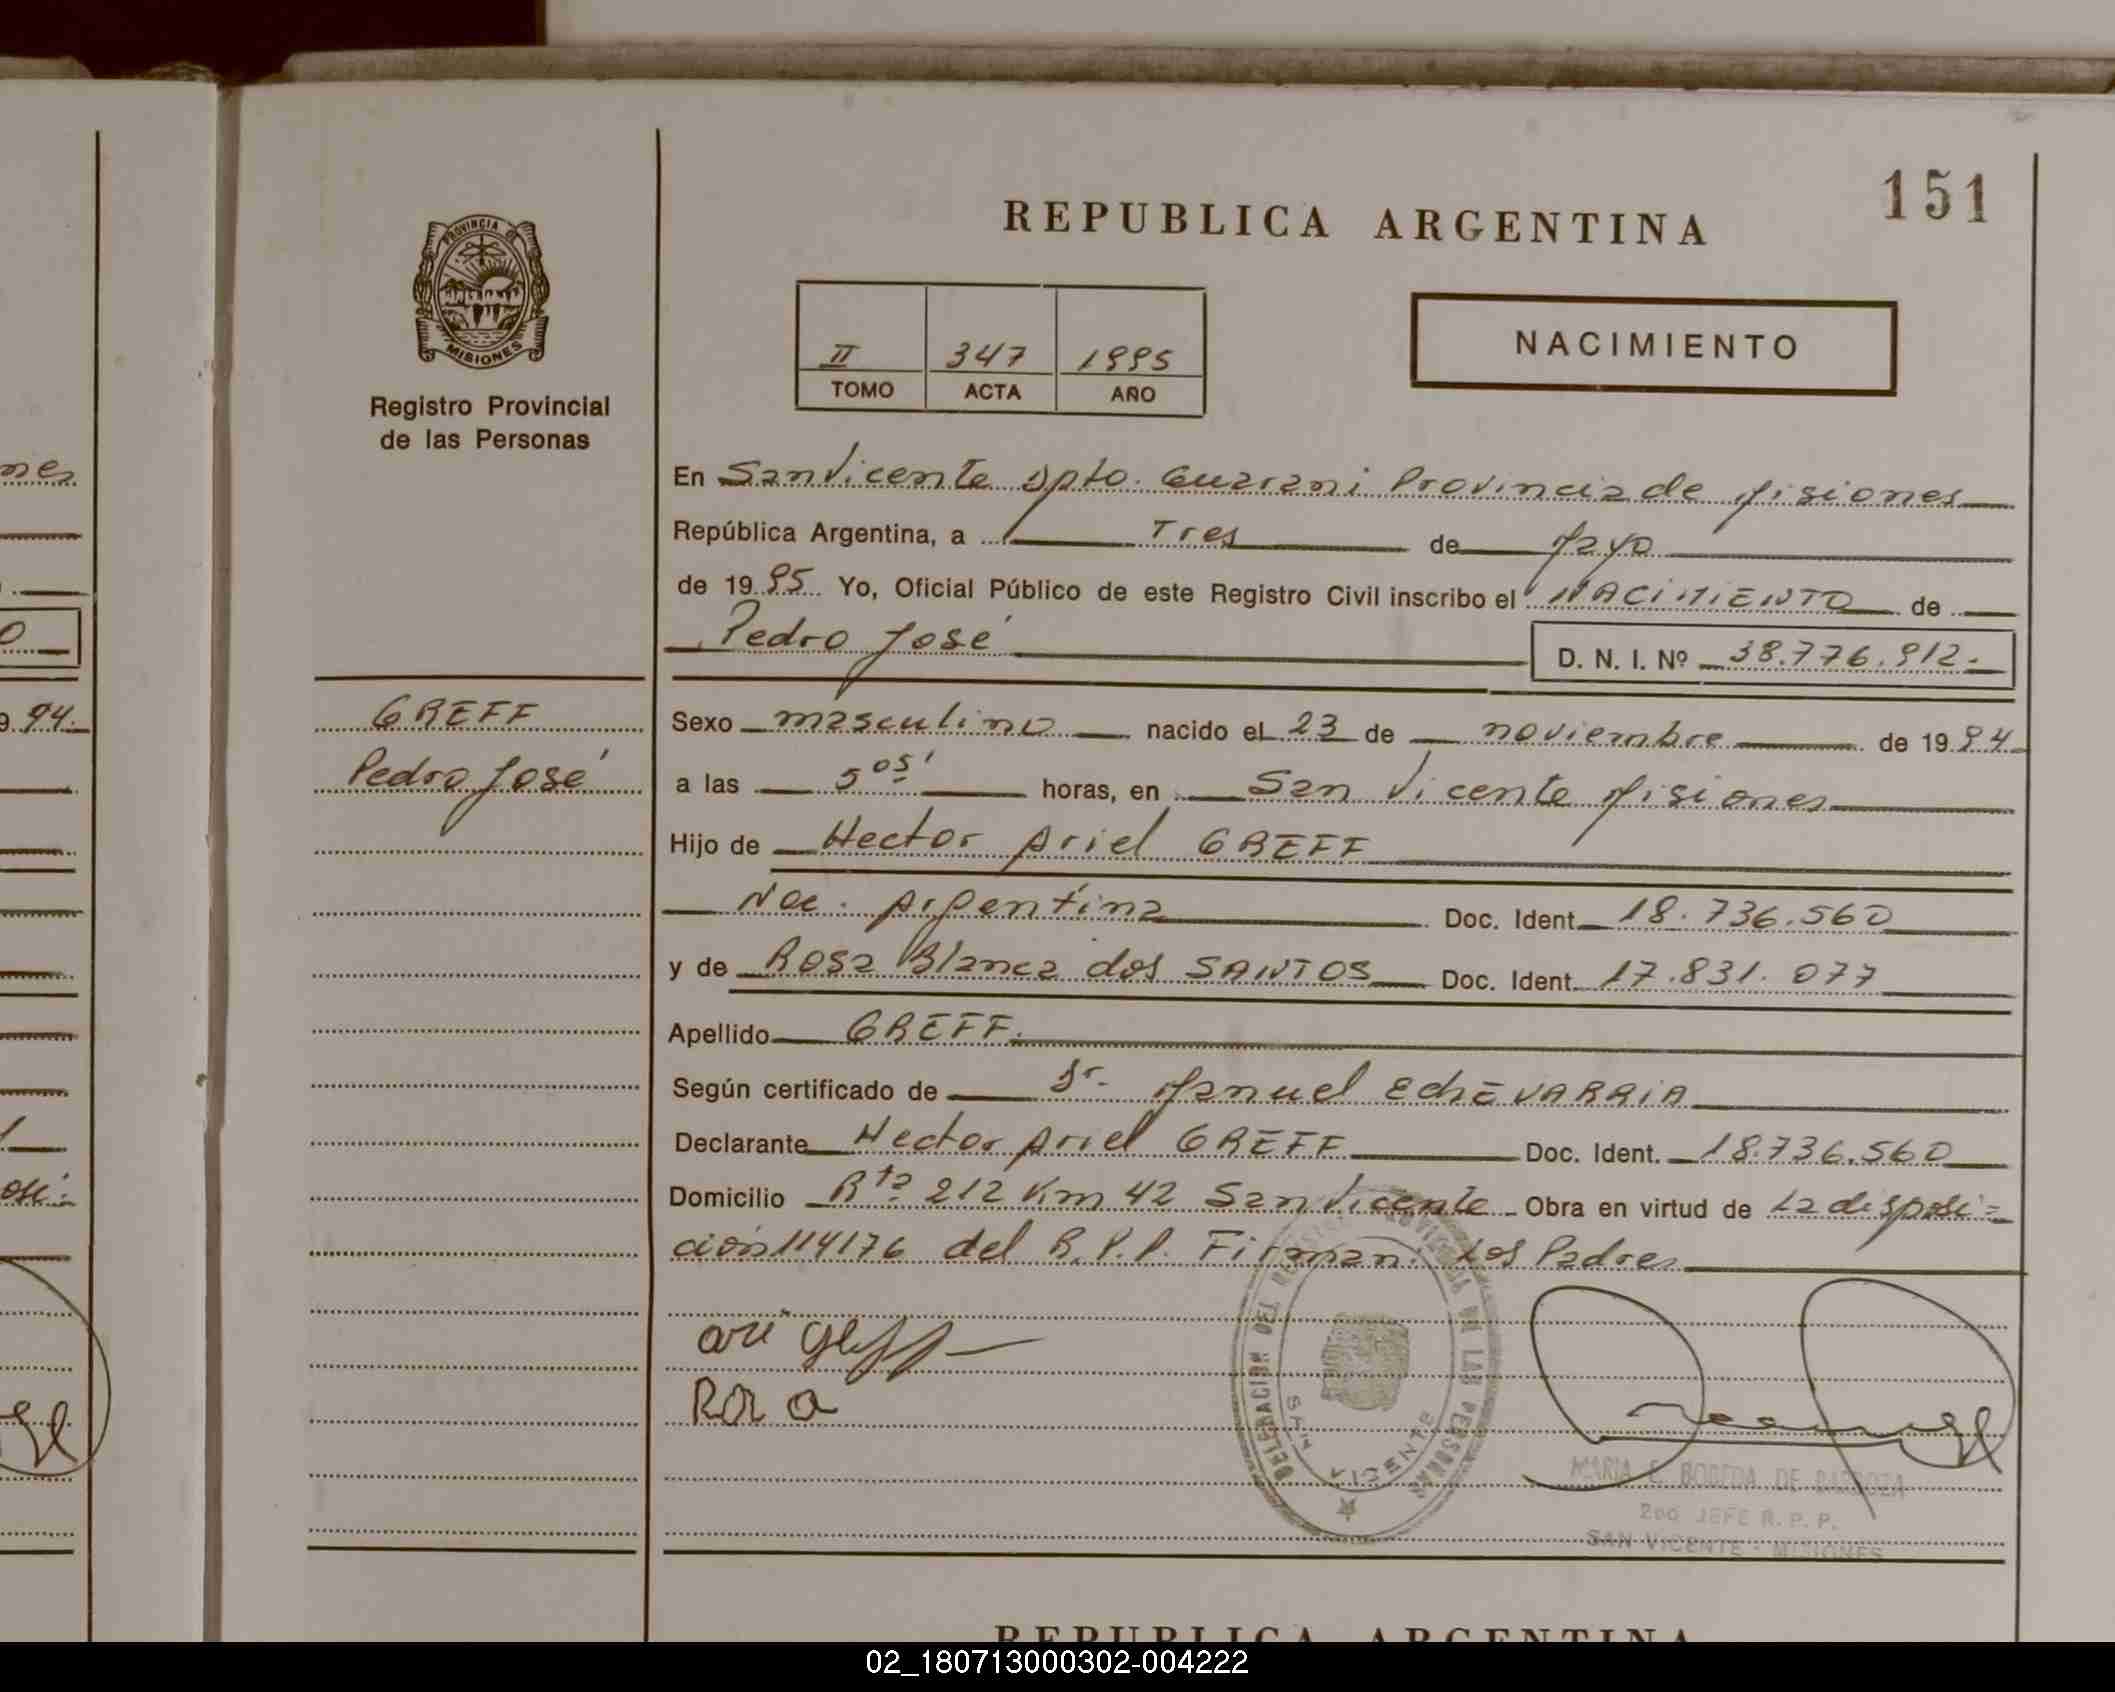 151
REPUBLICA ARGENTINA
PROVINCIA DE
MISIONES
Registro Provincial
de las Personas
NACIMIENTO
II 347 1995
TOMO ACTA AÑO
En San Vicente Dpto. Guarani Provincia de Misiones
República Argentina, a Tres de Mayo
de 1995. Yo, Oficial Público de este Registro Civil inscribo el NACIMIENTO de
Pedro José D. N. I. Nº 38.776.912.-
GREFF
Pedro José
Sexo masculino nacido el 23 de noviembre de 1994
a las 5 05' horas, en San Vicente Misiones
Hijo de Hector Ariel GREFF
Nac. Argentina Doc. Ident. 18.736.560
y de Rosa Blanca dos SANTOS Doc. Ident. 17.831.077
Apellido GREFF.
Según certificado de Dr. Manuel EchEVARRIA
Declarante Hector Ariel GREFF Doc. Ident. 18.736.560
Domicilio Rta 212 Km 42 San Vicente - Obra en virtud de La disposi=
ción 114176 del R.P.P. Firman. Los Padres
Rosa
DELEGACION DEL REGISTRO PROVINCIAL DE LAS PERSONAS
SAN VICENTE
2do JEFE R. P. P.
SAN VICENTE - MISIONES
REPUBLICA ARGENTINA
nes
O
9 94.
osé.-
02_180713000302-004222